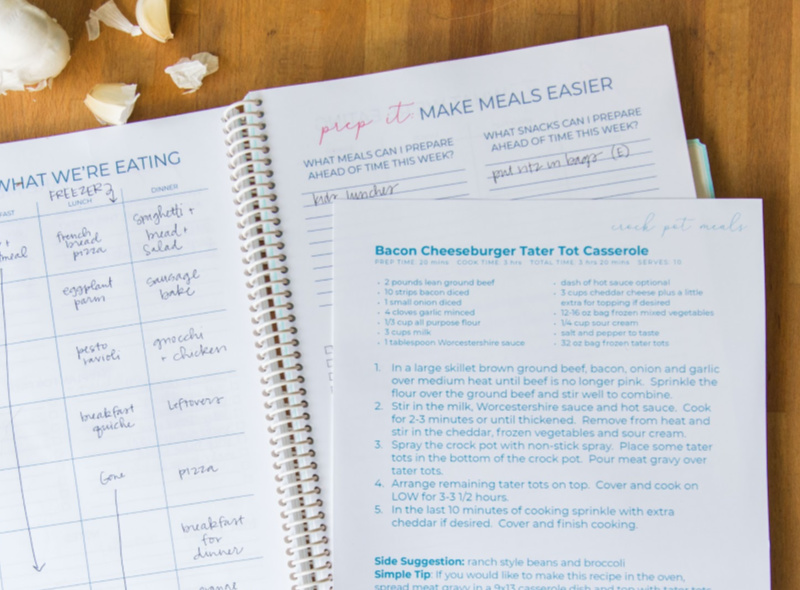 WHAT WE'RE EATING
FREEZER
LUNCH
DINNER
french
bread
pizza
spaghetti +
bread +
salad
eggplant
parm
sausage
bake
pesto
ravioli
gnocchi
+ chicken
breakfast
quiche
leftovers
Gone
pizza
breakfast
for
dinner
prep it: MAKE MEALS EASIER
WHAT MEALS CAN I PREPARE
AHEAD OF TIME THIS WEEK?
kids lunches
WHAT SNACKS CAN I PREPARE
AHEAD OF TIME THIS WEEK?
put ritz in bags (E)
crock pot meals
Bacon Cheeseburger Tater Tot Casserole
PREP TIME: 20 mins COOK TIME: 3 hrs TOTAL TIME: 3 hrs 20 mins SERVES: 10
• 2 pounds lean ground beef
• 10 strips bacon diced
• 1 small onion diced
• 4 cloves garlic minced
• 1/3 cup all purpose flour
• 3 cups milk
• 1 tablespoon Worcestershire sauce
• dash of hot sauce optional
• 3 cups cheddar cheese plus a little
extra for topping if desired
• 12-16 oz bag frozen mixed vegetables
• 1/4 cup sour cream
• salt and pepper to taste
• 32 oz bag frozen tater tots
1. In a large skillet brown ground beef, bacon, onion and garlic
over medium heat until beef is no longer pink. Sprinkle the
flour over the ground beef and stir well to combine.
2. Stir in the milk, Worcestershire sauce and hot sauce. Cook
for 2-3 minutes or until thickened. Remove from heat and
stir in the cheddar, frozen vegetables and sour cream.
3. Spray the crock pot with non-stick spray. Place some tater
tots in the bottom of the crock pot. Pour meat gravy over
tater tots.
4. Arrange remaining tater tots on top. Cover and cook on
LOW for 3-3 1/2 hours.
5. In the last 10 minutes of cooking sprinkle with extra
cheddar if desired. Cover and finish cooking.
Side Suggestion: ranch style beans and broccoli
Simple Tip: If you would like to make this recipe in the oven,
spread meat gravy in a 9x13 casserole dish and top with tater tots